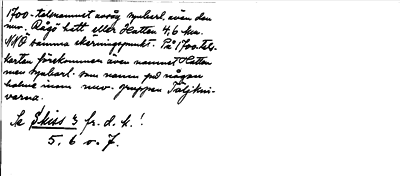 1700-talsnamnet avsåg synbarl. även den
nuv. Rågö hatt eller Hatten 4,6 km.
NNÖ samma ekerningspunkt. På 1700-tals-
kartan förekommer även namnet Hatten
men synbarl. som namn på någon
holme inom nuv. gruppen Täljkni-
varna.
Se Skiss 3 fr. d. k.!
5. 6 o. 7.